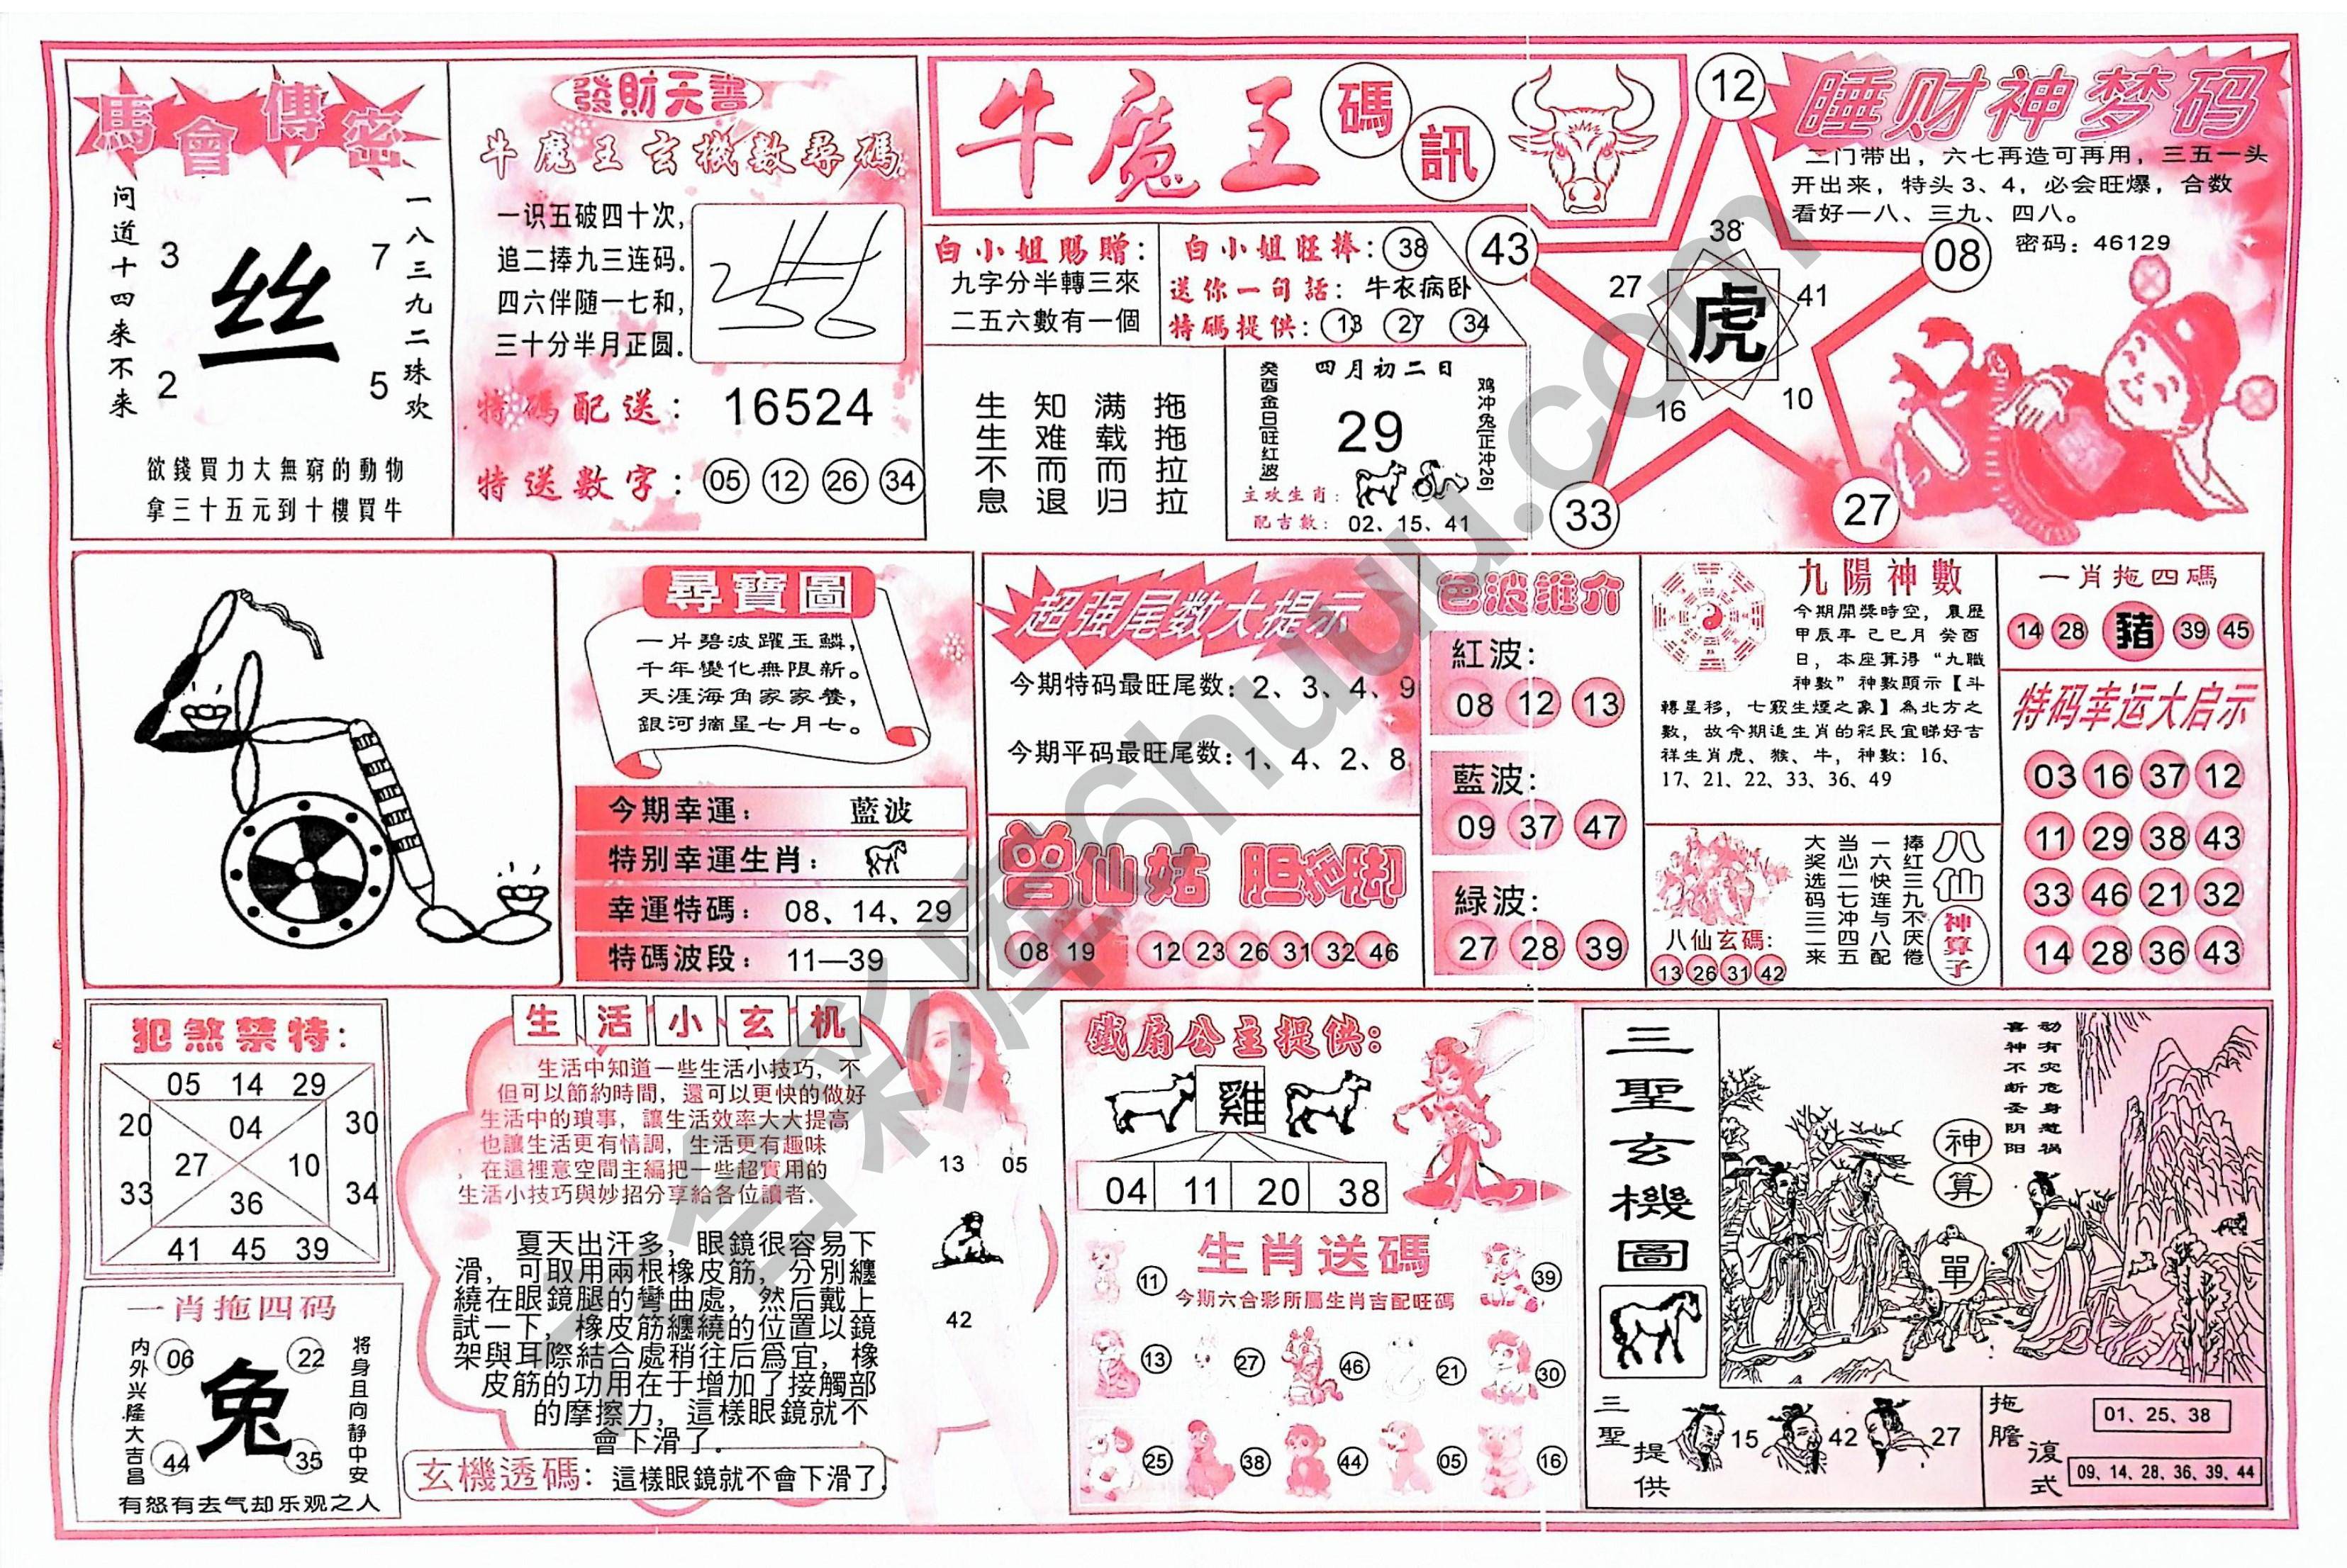 馬會傳密
问道十四来不来
3
7
丝
2
5
一八三九二珠欢
欲錢買力大無窮的動物
拿三十五元到十樓買牛
發財天書
牛魔王玄機數尋碼
一识五破四十次,
追二捧九三连码.
四六伴随一七和,
三十分半月正圆.
特碼配送：16524
特送數字：05 12 26 34
牛魔王
碼訊
白小姐賜贈：
九字分半轉三來
二五六數有一個
白小姐旺捧：38
送你一句話：牛衣病卧
特碼提供：13 27 34
生生不息
知难而退
满载而归
拖拖拉拉
癸酉金日[旺红波]
四月初二日
29
鸡冲兔[正冲26]
主攻生肖：
配吉數：02、15、41
12
43
08
33
27
38
27
41
虎
16
10
睡财神梦码
二门带出，六七再造可再用，三五一头
开出来，特头3、4，必会旺爆，合数
看好一八、三九、四八。
密码：46129
尋寶圖
一片碧波躍玉鱗，
千年變化無限新。
天涯海角家家養，
銀河摘星七月七。
今期幸運：藍波
特别幸運生肖：
幸運特碼：08、14、29
特碼波段：11—39
超强尾数大提示
今期特码最旺尾数：2、3、4、9
今期平码最旺尾数：1、4、2、8
曾仙姑 胆拖脚
08 19 12 23 26 31 32 46
色波推介
紅波：
08 12 13
藍波：
09 37 47
緑波：
27 28 39
九陽神數
今期開獎時空，農歷
甲辰年 己巳月 癸酉
日，本座算得“九職
神數”神數顯示【斗
轉星移，七竅生煙之象】為北方之
數，故今期追生肖的彩民宜睇好吉
祥生肖虎、猴、牛，神數：16、
17、21、22、33、36、49
八仙玄碼：
13 26 31 42
八仙神算子
捧红三九不厌倦
一六快连与八配
当心二七冲四五
大奖选码三二来
一肖拖四碼
14 28 豬 39 45
特码幸运大启示
03 16 37 12
11 29 38 43
33 46 21 32
14 28 36 43
犯煞禁特：
05 14 29
20 04 30
27 10
33 36 34
41 45 39
一肖拖四码
内外兴隆大吉昌
06 22
兔
44 35
将身且向静中安
有怒有去气却乐观之人
生活小玄机
生活中知道一些生活小技巧，不
但可以節約時間，還可以更快的做好
生活中的瑣事，讓生活效率大大提高
，也讓生活更有情調，生活更有趣味
，在這裡意空間主編把一些超實用的
生活小技巧與妙招分享給各位讀者.
夏天出汗多，眼鏡很容易下
滑，可取用兩根橡皮筋，分別纏
繞在眼鏡腿的彎曲處，然后戴上
試一下，橡皮筋纏繞的位置以鏡
架與耳際結合處稍往后爲宜，橡
皮筋的功用在于增加了接觸部
的摩擦力，這樣眼鏡就不
會下滑了.
玄機透碼：這樣眼鏡就不會下滑了.
13 05
42
鐵扇公主提供：
雞
04 11 20 38
生肖送碼
今期六合彩所屬生肖吉配旺碼
11 39
13 27 46 21 30
25 38 44 05 16
三聖玄機圖
动有灾危身惹祸
喜神不断圣阴阳
神算
單
三聖提供
15 42 27
拖膽復式
01、25、38
09、14、28、36、39、44
六合彩库6huuu.com